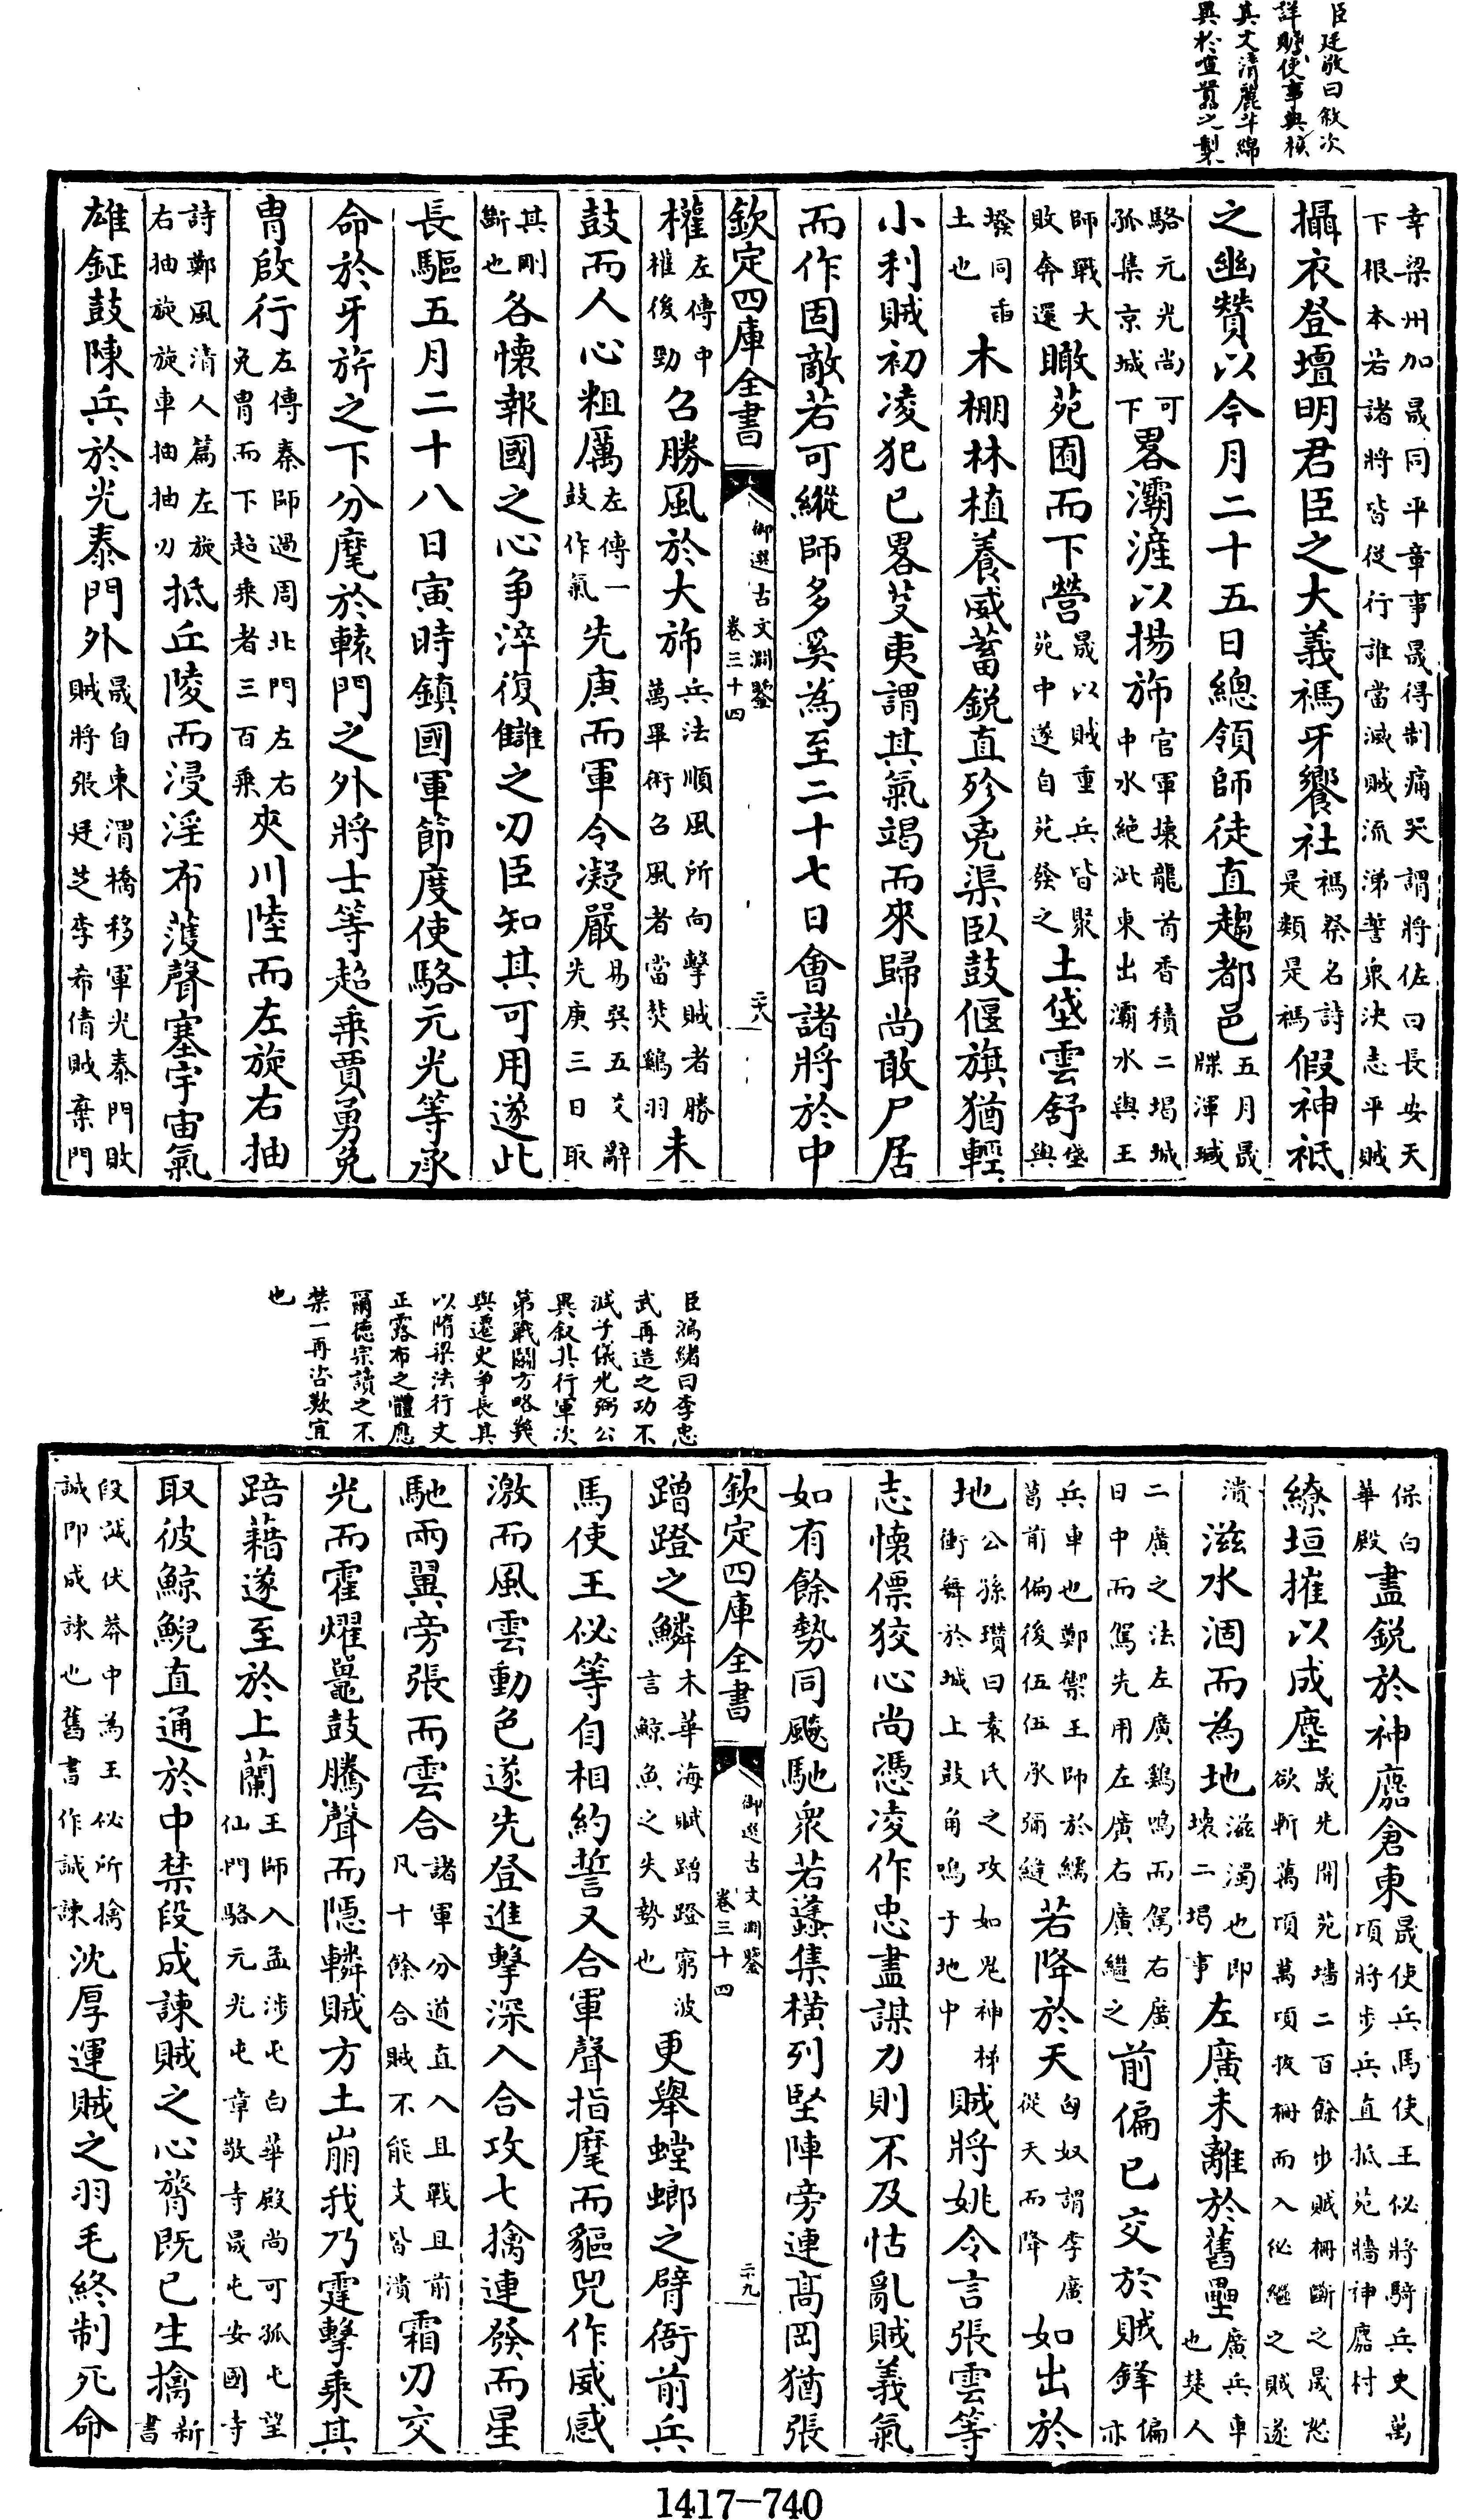 臣廷敬曰敘次
詳贍使事典核
其文清麗芊綿
異於喧囂之製
幸梁州加晟同平章事晟得制痛哭謂將佐曰長安天
下根本若諸將皆從行誰當滅賊流涕誓衆決志平賊
攝衣登壇明君臣之大義禡牙饗社禡祭名詩是類是禡假神祗
之幽贊以今月二十五日總領師徒直趨都邑五月晟牒渾瑊
駱元光尚可孤集京城下畧灞滻以揚斾官軍壊龍首香積二堨城中水絶泚東出灞水與王
師戰大敗奔還瞰苑囿而下營晟以賊重兵皆聚苑中遂自苑發之土垡雲舒垡與
墢同臿土也木栅林植養威蓄銳直殄兇渠臥鼓偃旗猶輕
小利賊初凌犯已畧芟夷謂其氣竭而來歸尚敢尸居
而作固敵若可縱師多奚為至二十七日會諸將於中
欽定四庫全書
御選古文淵鑒
卷三十四
二十八
權左傳中權後勁召勝風於大斾兵法順風所向擊賊者勝萬畢術召風者當焚鷄羽未
鼓而人心粗厲左傳一鼓作氣先庚而軍令凝嚴易巽五爻辭先庚三日取
其剛斷也各懷報國之心争淬復讎之刃臣知其可用遂此
長驅五月二十八日寅時鎮國軍節度使駱元光等承
命於牙旂之下分麾於轅門之外將士等超乗賈勇免
冑啟行左傳秦師過周北門左右免冑而下超乗者三百乗夾川陸而左旋右抽
詩鄭風清人篇左旋右抽旋旋車抽抽刃抵丘陵而浸淫布濩聲塞宇宙氣
雄鉦鼓陳兵於光泰門外晟自東渭橋移軍光泰門敗賊將張廷芝李希倩賊棄門
臣鴻緒曰李忠
武再造之功不
減子儀光弼公
異叙其行軍次
第戰鬭方略幾
與遷史争長其
以隋梁法行文
正露布之體應
爾德宗讀之不
禁一再咨歎宜
也
保白華殿盡銳於神麚倉東晟使兵馬使王佖將騎兵史萬頃將步兵直抵苑牆神麚村
繚垣摧以成塵晟先開苑墻二百餘步賊柵斷之晟怒欲斬萬頃萬頃拔柵而入佖繼之賊遂
潰滋水涸而為地滋濁也即壊二堨事左廣未離於舊壘廣兵車也楚人
二廣之法左廣鷄鳴而駕右廣日中而駕先用左廣右廣繼之前偏已交於賊鋒偏亦
兵車也鄭禦王師於繻葛前偏後伍伍承彌縫若降於天匈奴謂李廣從天而降如出於
地公孫瓚曰袁氏之攻如鬼神梯衝舞於城上鼓角鳴于地中賊將姚令言張雲等
志懷僄狡心尚憑凌作忠盡謀刀則不及怙亂賊義氣
如有餘勢同飈馳衆若蠭集横列堅陣旁連高岡猶張
欽定四庫全書
御選古文淵鑒
卷三十四
二十九
蹭蹬之鱗木華海賦蹭蹬窮波言鯨魚之失勢也更舉螳螂之臂衙前兵
馬使王佖等自相約誓又合軍聲指麾而貙兕作威感
激而風雲動色遂先登進擊深入合攻七擒連發而星
馳兩翼旁張而雲合諸軍分道直入且戰且前凡十餘合賊不能支皆潰霜刃交
光而霍燿鼉鼓騰聲而隱轔賊方土崩我乃霆擊乘其
踣藉遂至於上蘭王師入孟涉屯白華殿尚可孤屯望仙門駱元光屯章敬寺晟屯安國寺
取彼鯨鯢直通於中禁段成諫賊之心膂既已生擒新書
段誠伏莽中為王佖所擒誠即成諫也舊書作誠諫沈厚運賊之羽毛終制死命
1417-740